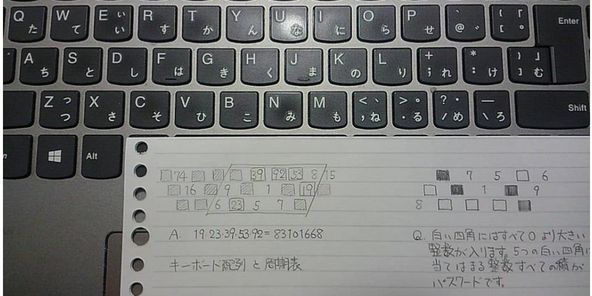 Q た W て E い ぃ R す T か Y ん U な I に O ら P せ @ ゛ { 「 [ ゜ Enter
A ち S と D し F は G き H く J ま K の L り + ; れ * : け } 」 ] む
Z つ っ X さ C そ V ひ B こ N み M も < 、 , ね > 。 . る ? ・ / め \ ろ Shift
Alt
74 39 92 53 8 15
16 9 1 19
6 23 5 7
A. 19·23·39·53·92 = 83101668
キーボード配列 と 周期表
7 5 6
1 9
8
Q. 白い四角にはすべて0より大きい
整数が入ります。5つの白い四角に
当てはまる整数すべての積が
パスワードです。